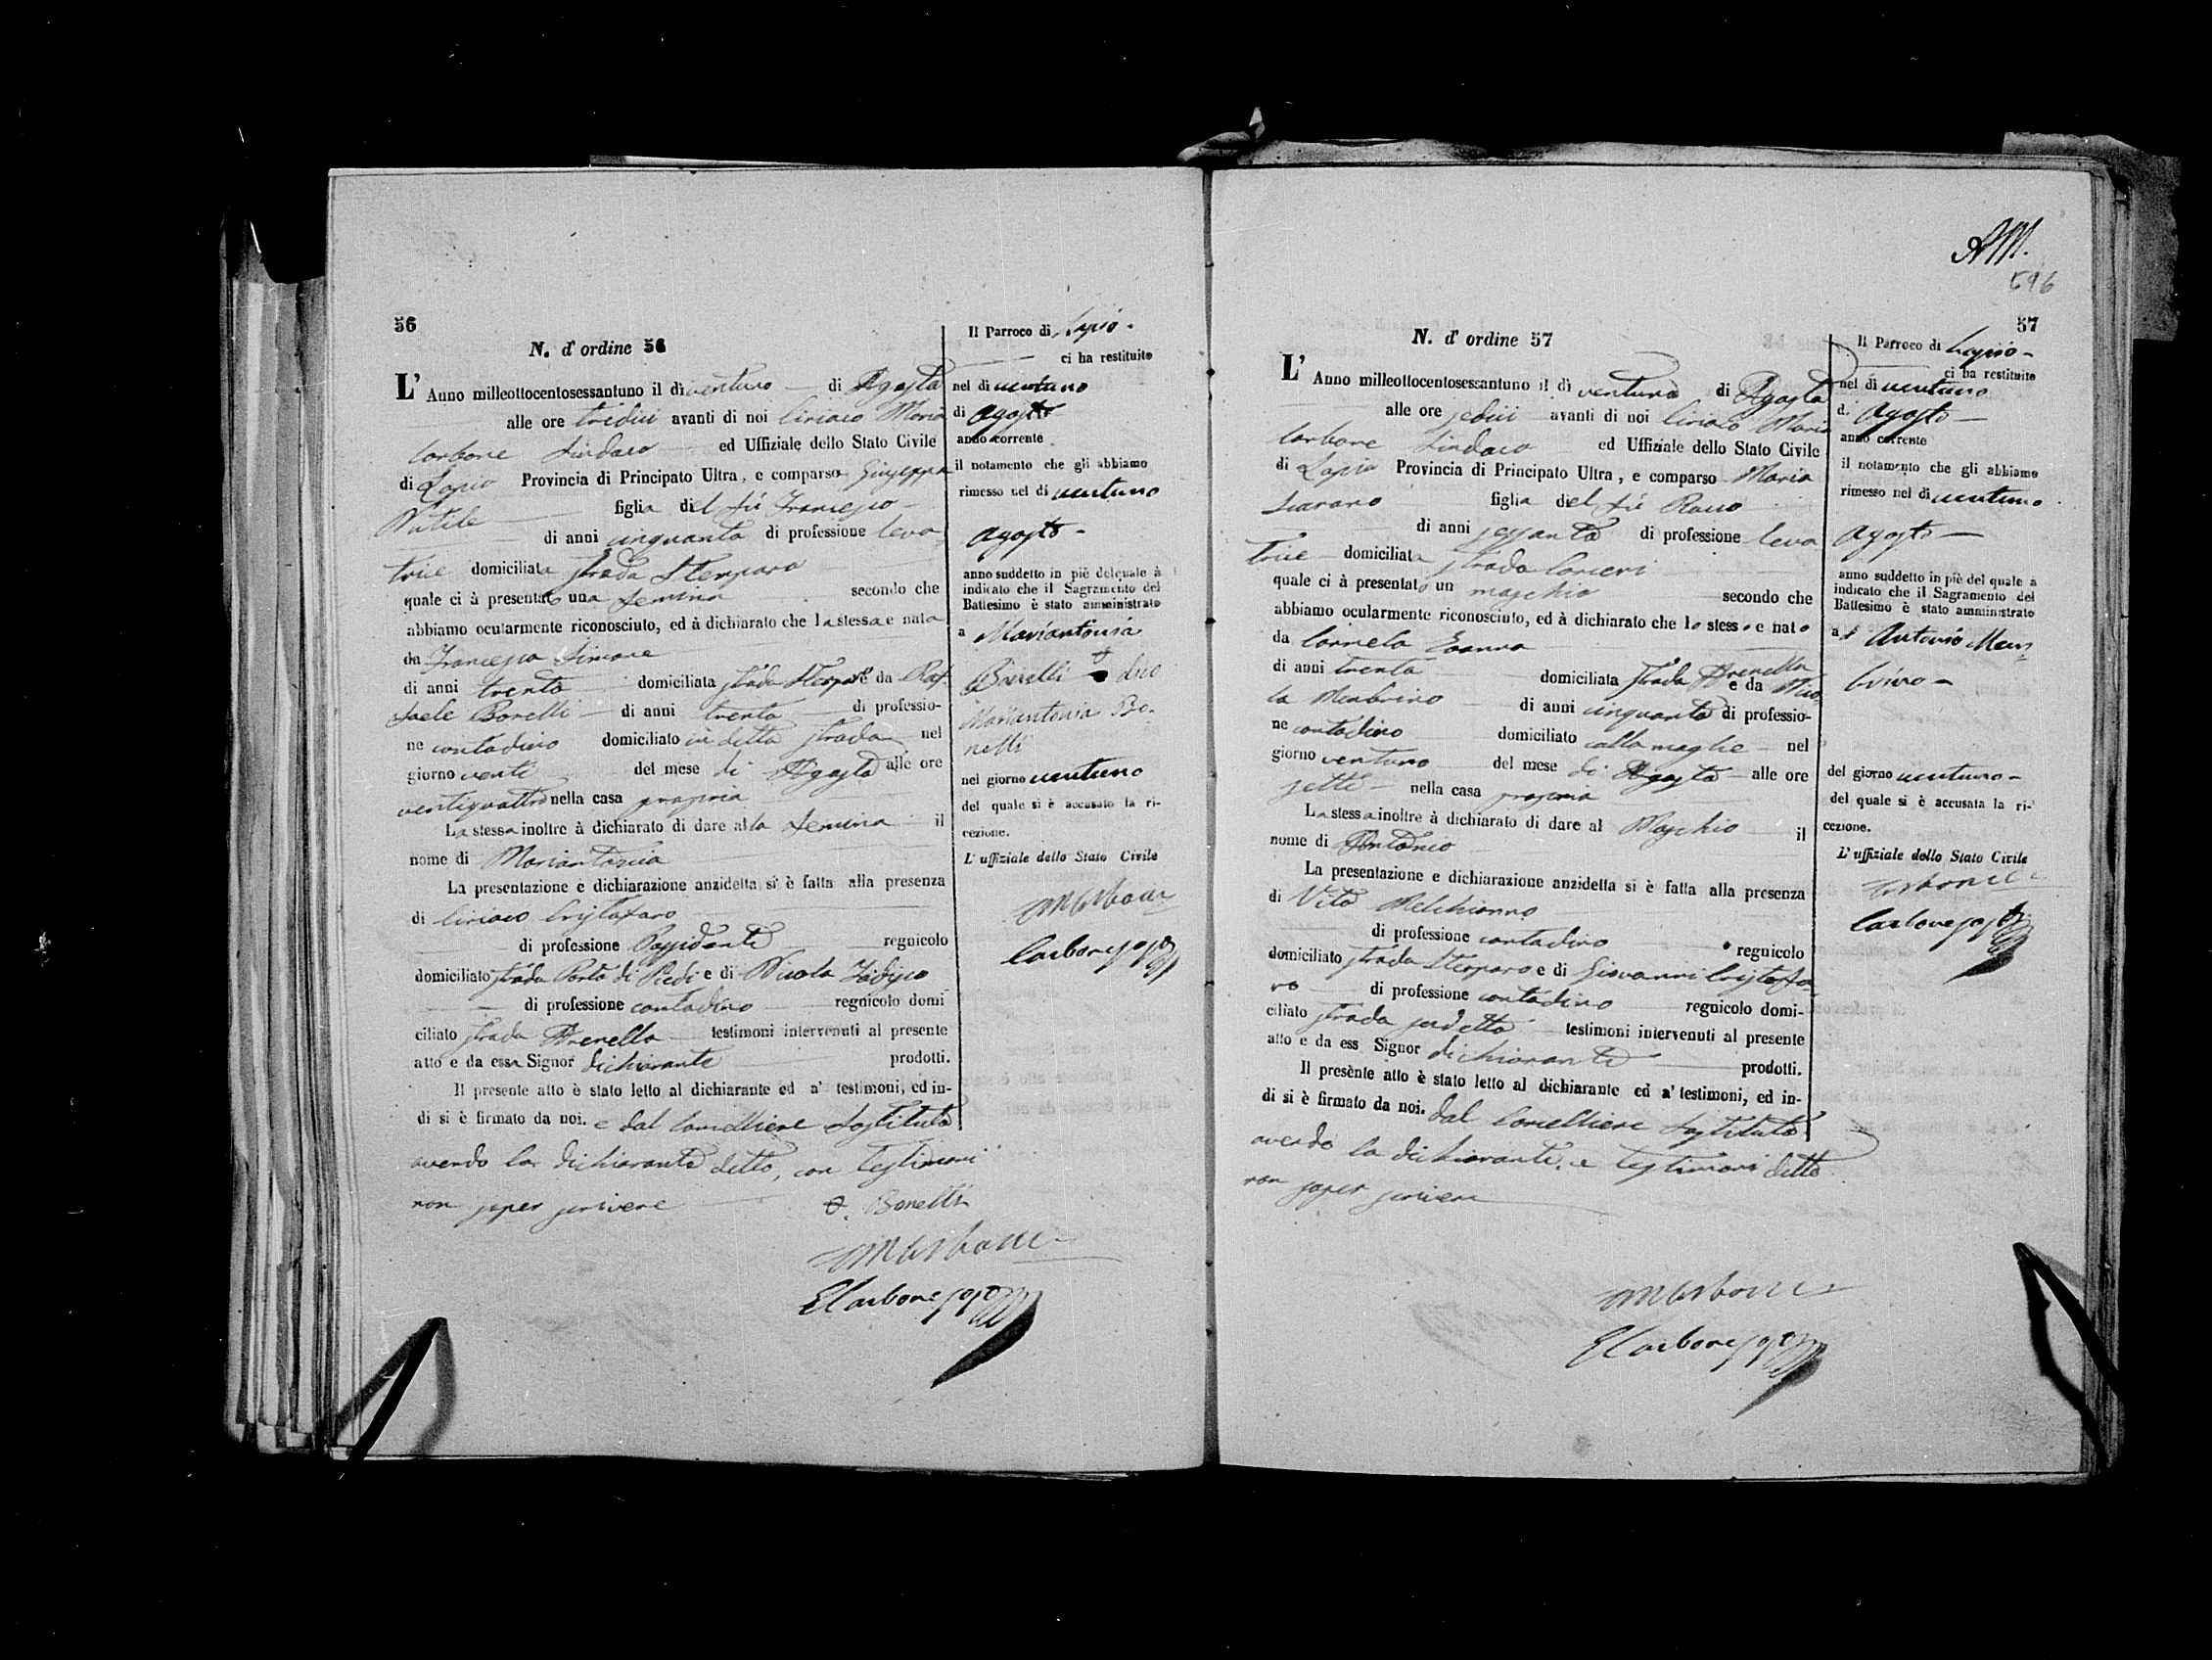 56
N. d' ordine 56
L' Anno milleottocentosessantuno il dì ventuno di Agosto
alle ore tredici avanti di noi Ciriaco Maria
Carbone Sindaco ed Uffiziale dello Stato Civile
di Lapio Provincia di Principato Ultra, e comparsa Giuseppa
Nutile figlia del fù Francesco
di anni cinquanta di professione leva
trice domiciliata strada Sterpara
quale ci à presentato una femina secondo che
abbiamo ocularmente riconosciuto, ed à dichiarato che la stessa e nata
da Francesca Simone
di anni trenta domiciliata strada e da Raf
faele Bonelli di anni trenta di professio-
ne contadino domiciliato in detta strada nel
giorno venti del mese di Agosto alle ore
ventiquattro nella casa propria
La stessa inoltre à dichiarato di dare alla femina il
nome di Mariantonia
La presentazione e dichiarazione anzidetta si è fatta alla presenza
di Ciriaco Cristofaro
di professione Possidente regnicolo
domiciliato strada Porta di Piedi e di Nicola
di professione contadino regnicolo domi
ciliato strada Arenella testimoni intervenuti al presente
atto e da essa Signor dichiarante prodotti.
Il presente atto è stato letto al dichiarante ed a' testimoni, ed in-
di si è firmato da noi. e dal Cancelliere Sostituto
avendo la dichiarante detto, con testimoni
non saper scrivere
Bonelli
Carbone
Il Parroco di Lapio
ci ha restituito
nel dì ventuno
di Agosto
anno corrente
il notamento che gli abbiamo
rimesso nel dì ventuno
Agosto
anno suddetto in piè del quale à
indicato che il Sagramento del
Battesimo è stato amministrato
a Mariantonia
dico
Mariantonia Bo-
nelli
nel giorno ventuno
del quale si è accusato la ri-
cezione.
L' uffiziale dello Stato Civile
Carbone
596
57
N. d' ordine 57
L' Anno milleottocentosessantuno il dì ventuno di Agosto
alle ore sedici avanti di noi Ciriaco Maria
Carbone Sindaco ed Uffiziale dello Stato Civile
di Lapio Provincia di Principato Ultra, e comparso Maria
figlia del fù Rocco
di anni sessanta di professione leva
trice domiciliata strada
quale ci à presentato un maschio secondo che
abbiamo ocularmente riconosciuto, ed à dichiarato che lo stesso e nato
da Carmela
di anni trenta domiciliata strada Arenella e da Nico
la Menbrino di anni cinquanta di professio-
ne contadino domiciliato nel
giorno ventuno del mese di Agosto alle ore
sette nella casa propria
La stessa inoltre à dichiarato di dare al Maschio il
nome di Antonio
La presentazione e dichiarazione anzidetta si è fatta alla presenza
di Vito Melchionno
di professione contadino regnicolo
domiciliato strada Sterpara e di Giovanni Cristofa
ro di professione contadino regnicolo domi-
ciliato strada sudetta testimoni intervenuti al presente
atto e da ess Signor dichiarante prodotti.
Il presente atto è stato letto al dichiarante ed a' testimoni, ed in-
di si è firmato da noi. dal Cancelliere Sostituto
avendo la dichiarante, e testimoni detto
non saper scrivere
Carbone
Il Parroco di Lapio
ci ha restituito
nel dì ventuno
di Agosto
anno corrente
il notamento che gli abbiamo
rimesso nel dì ventuno
Agosto
anno suddetto in piè del quale a
indicato che il Sagramento del
Battesimo è stato amministrato
a Antonio Men
brino
del giorno ventuno
del quale si è accusata la ri-
cezione.
L' uffiziale dello Stato Civile
Carbone